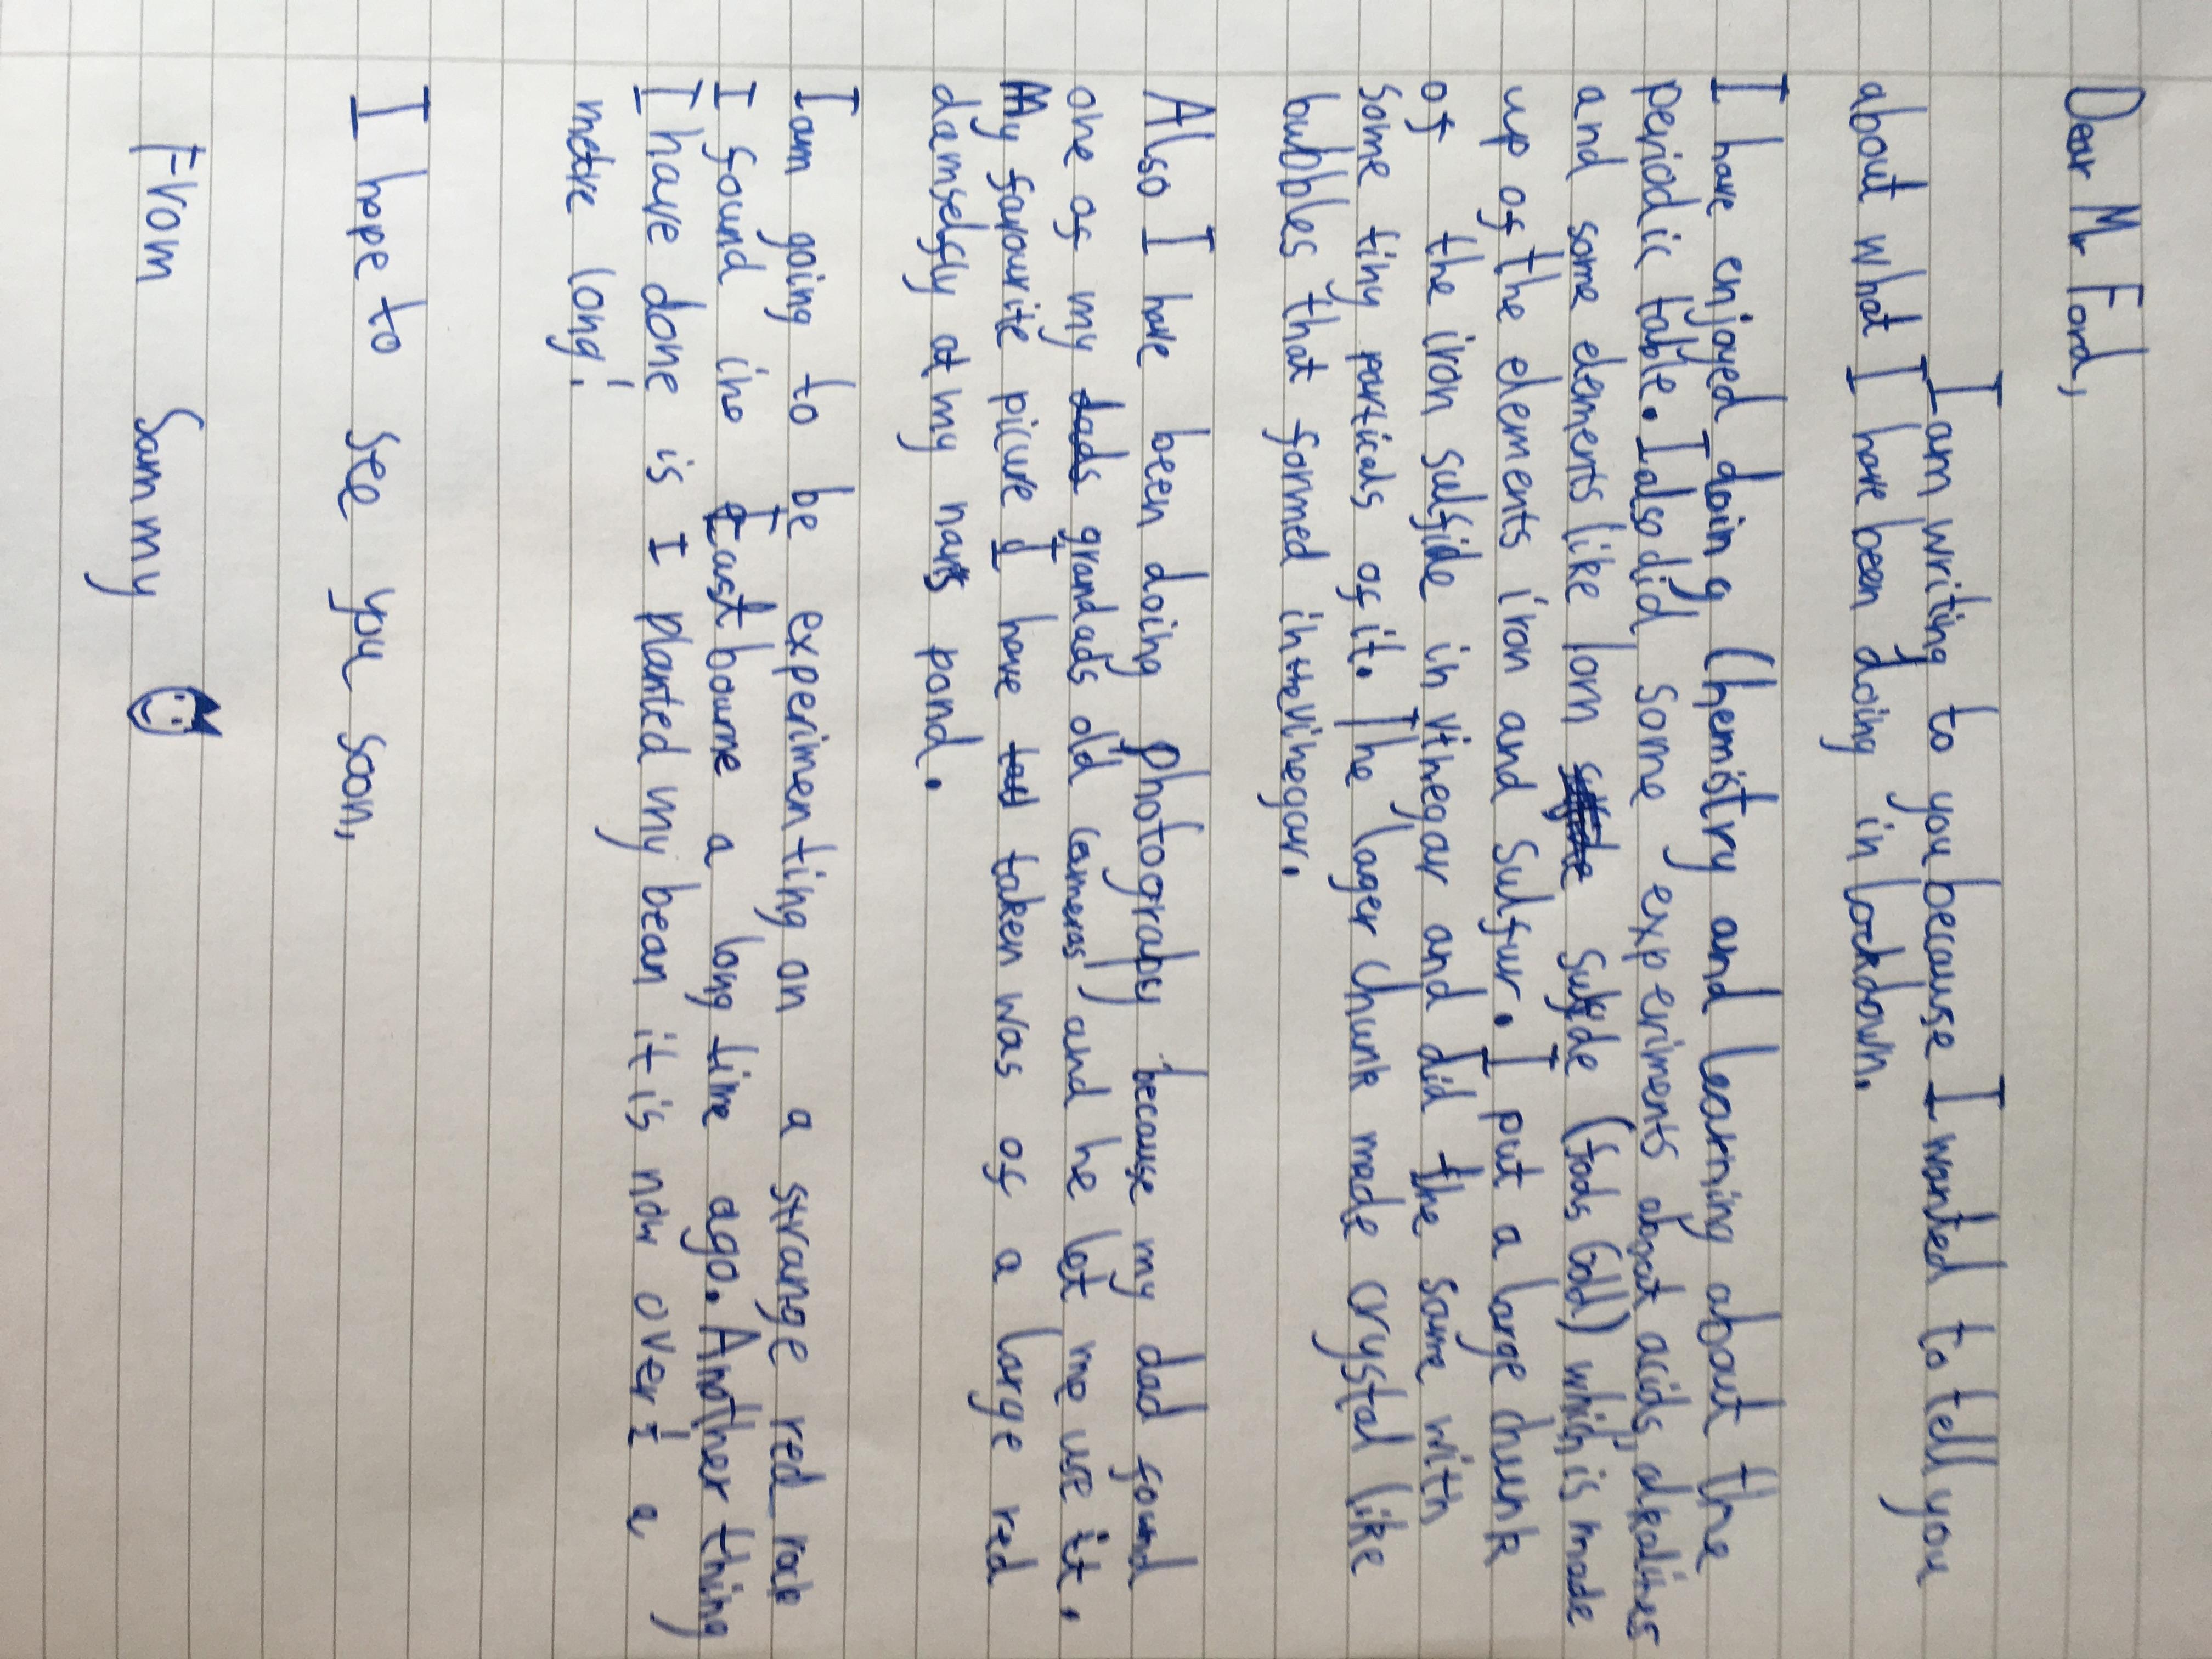 Dear Mr Ford,
I am writing to you because I wanted to tell you
about what I have been doing in lockdown.
I have enjoyed doing Chemistry and learning about the
periodic table. I also did some experiments about acids, alkalines
and some elements like Iorn Sulfide (fools Gold) which is made
up of the elements iron and Sulfur. I put a large chunk
of the iron sulfide in vinegar and did the same with
some tiny particals of it. The lager chunk made crystal like
bubbles that formed in the vinegar.
Also I have been doing photography because my dad found
one of my dads grandads old cameras and he let me use it.
My favourite picure I have taken was of a large red
damselfly at my nans pond.
I am going to be experimenting on a strange red rock
I found in Eastbourne a long time ago. Another thing
I have done is I planted my bean it is now over ½ a
metre long!
I hope to see you soon,
From Sammy